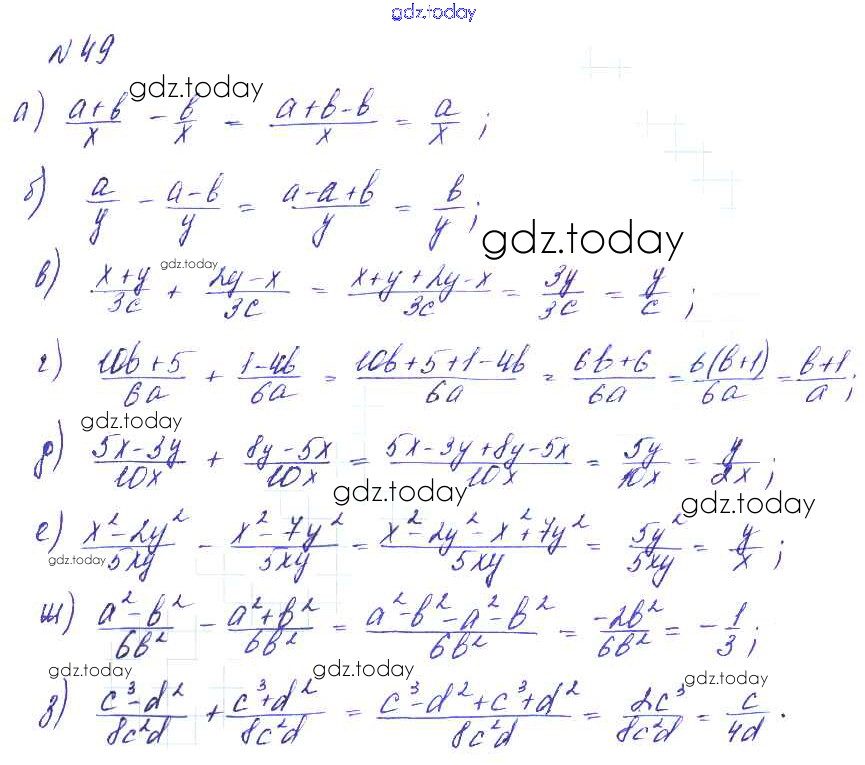 gdz.today
№ 49
gdz.today
а) (a+b)/x - b/x = (a+b-b)/x = a/x ;
б) a/y - (a-b)/y = (a-a+b)/y = b/y ;
gdz.today
gdz.today
в) (x+y)/3c + (2y-x)/3c = (x+y+2y-x)/3c = 3y/3c = y/c ;
г) (10b+5)/6a + (1-4b)/6a = (10b+5+1-4b)/6a = (6b+6)/6a = 6(b+1)/6a = (b+1)/a ;
gdz.today
д) (5x-3y)/10x + (8y-5x)/10x = (5x-3y+8y-5x)/10x = 5y/10x = y/2x ;
gdz.today gdz.today
е) (x²-2y²)/5xy - (x²-7y²)/5xy = (x²-2y²-x²+7y²)/5xy = 5y²/5xy = y/x ;
gdz.today
ж) (a²-b²)/6b² - (a²+b²)/6b² = (a²-b²-a²-b²)/6b² = -2b²/6b² = -1/3 ;
gdz.today gdz.today gdz.today
з) (c³-d²)/8c²d + (c³+d²)/8c²d = (c³-d²+c³+d²)/8c²d = 2c³/8c²d = c/4d .